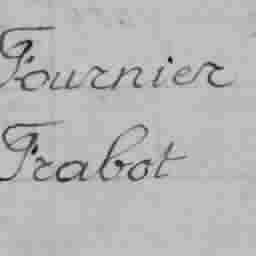 Fournier
Frabot